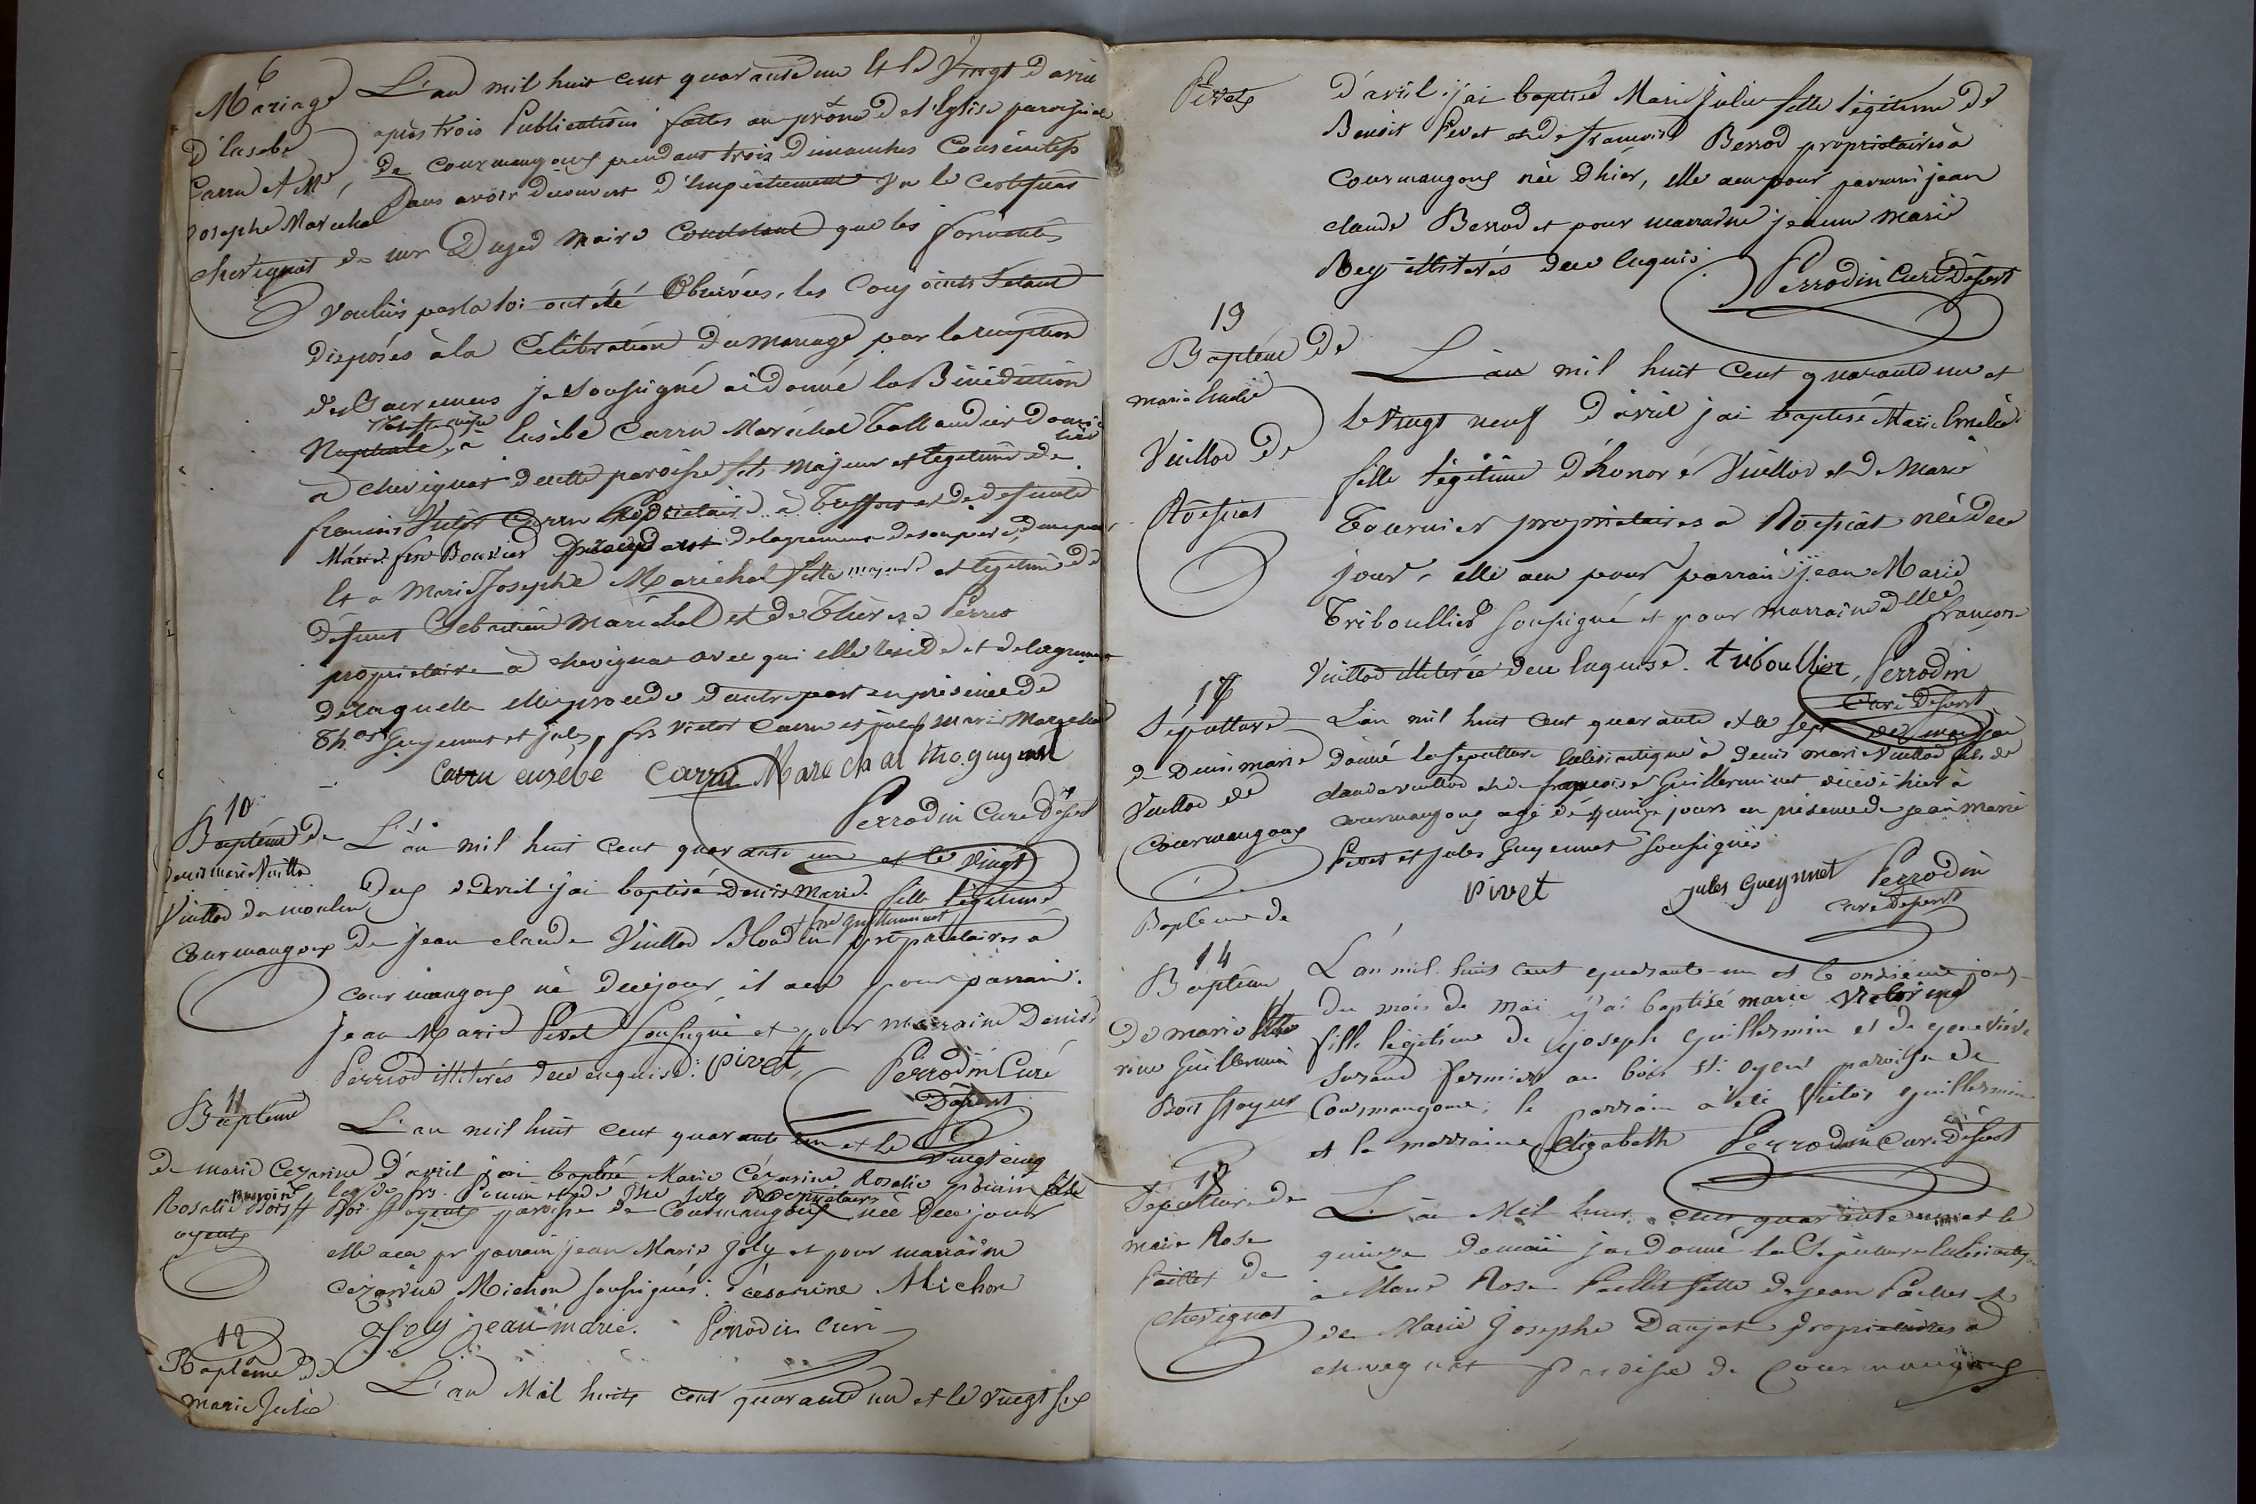 6
Mariage
d'Eusèbe
Carru et Mie
Josephe Maréchal
chevignat
L'an mil huit cent quarante un Et le Vingt d'avril
après trois Publications faites au prône de l'Eglise paroissiale
de courmangoux pendant trois Dimanches Consécutifs
Sans avoir découvert d'Empêchement Vu le Certificat
de mr Dujed maire Constatant que les formalités
voulues par la loi ont été Observées, les Conjoints s'étant
disposés à la Célébration du mariage par la réception
des Sacremens je soussigné ai donné la Bénédiction
Nuptiale, à Eusèbe Carru Maréchal Taillandier domi
cilié
à chevignat de cette paroisse fils majeur et légitime de
francois Victor Carru Propriétaire à Treffort et de défunte
Marie fse Bouvier procédant de l'agrément de son père, d'une part
Et a Marie Josephe Maréchal fille majeure et légitime de
défunt Sebastien Maréchal et de Thérèze Perret
propriétaire à chevignat avec qui elle réside et de l'agrément
de laquelle elle procède d'autre part en présence de
Thas Guyennet et jules, frs Victor Carru et joseph marie Maréchal
Carru eusébe Carru Marechal tho. guyenet
Perrodin Curé Dessert
10
Baptême de
denis marie Vuillod
Vuillod du moulin
Courmangoux
L'an mil huit cent quarante un et le vingt
deux d'avril j'ai baptisé denis Marie fille légitime
de jean claude Vuillod Blondin et fse Guillerminet propriétaires à
courmangoux né de ce jour il a eu pour parrain:
jean Marie Pivet soussigné et pour marraine Denise
Perriod illitérés de ce enquise: pivet, Perrodin Curé
Dessert
11
Baptême
de marie Cezarine
Rosalie Poncin Bois St
oyent
L'an mil huit cent quarante un et le vingt cinq
d'avril j'ai baptisé Marie Cézarine Rosalie poncin fille
leg de frs. Poncin et de Jhe Joly Propriétaires
Bois St oyent paroisse de Courmangoux née de ce jour
elle a eu pr parrain jean Marie Joly et pour marraine
cezarine Michon soussignés: césarine Michon
Joly jean-marie. Perrodin curé
12
Baptême de
marie Julie
L'an Mil huit cent quarante un et le vingt six
Pivet
d'avril j'ai baptisé Marie Julie fille légitime de
Benoit Pivet et de francoise Berrod propriétaires à
courmangoux née d'hier, elle a eu pour parrain jean
claude Berrod et pour marraine jeanne Marie
Rey illitérés de ce enquis. Perrodin Curé Dessert
13
Baptême de
marie Emélie
Vuillod de
Roissiat
L'an mil huit Cent quarante un et
le vingt neuf d'avril j'ai baptisé Marie Emélie
fille légitime d'honoré Vuillod et de Marie
Tournier propriétaires à Roissiat née de ce
jour, elle a eu pour parrain jean Marie
Triboullier soussigné et pour marraine Delle françoise
Vuillod illitérée de ce enquise. triboullier, Perrodin
Curé Dessert
17
Sépulture
de Denis marie
Vuillod de
Courmangoux
L'an mil huit cent quarante et le sept de mai j'ai
donné la sépulture Ecclésiastique à denis marie Vuillod fils de
claude vuillod et de françoise Guillerminet décédé hier à
courmangoux agé de quinze jours en présence de jean marie
Pivet et jules Guyennet soussignés
pivet jules Gueynnet Perrodin
curé Dessert
Baptême de
14
Baptême
de marie Victo
rine Guillermin
Bois St oyent
L'an mil huit cent quarante-un et le onzième jour
du mois de mai j'ai baptisé marie victorine
fille légitime de joseph guillermin et de geneviève
Durand fermiers au bois St. oyent paroisse de
Courmangoux; le parrain a été Victor guillermin
et la marraine Elizabeth Perrodin Curé Dessert
18
Sépulture de
marie Rose
Paillet de
chevignat
L'an Mil huit cent quarante un et le
quinze de mai j'ai donné la Sépulture Ecclésiastique
à Marie Rose Paillet fille de jean Paillet et
de Marie Josephe Daujat propriétaires à
chevignat Paroisse de Courmangoux